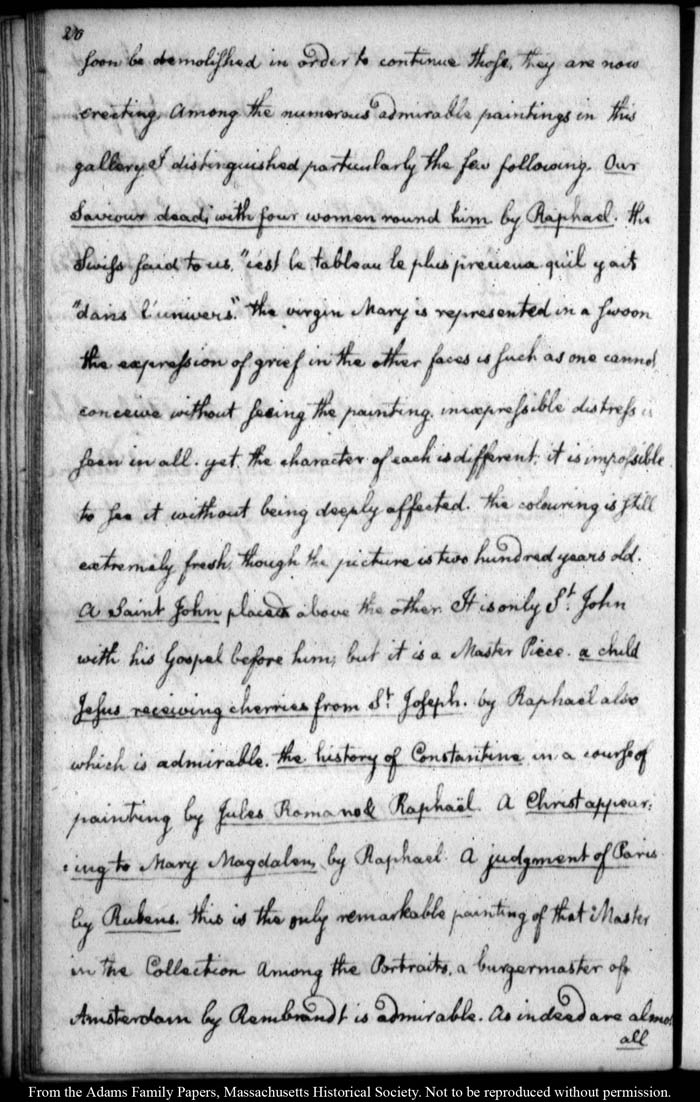 20
soon be demolished in order to continue those, they are now
erecting, Among the numerous admirable paintings in this
gallery I distinguished particularly the few following. Our
Saviour dead, with four women round him by Raphael. the
Swiss said to us. "c'est le tableau le plus precieux qu'il y ait
"dans l'univers". the virgin Mary is represented in a swoon
the expression of grief in the other faces is such as one cannot
conceive without seeing the painting. inexpressible distress is
seen in all. yet, the character of each is different; it is impossible
to see it without being deeply affected. the colouring is still
extremely fresh, though the picture is two hundred years old.
A Saint John placed above the other. It is only St. John
with his Gospel before him; but it is a Master Piece. a child
Jesus receiving cherries from St. Joseph. by Raphael also
which is admirable. the history of Constantine in a course of
painting by Jules Romano & Raphaël. A Christ appear:
:ing to Mary Magdalen, by Raphael. A judgment of Paris
by Rubens. this is the only remarkable painting of that Master
in the Collection Among the Portraits, a burgermaster of
Amsterdam by Rembrandt is admirable. As indeed are almost
all
From the Adams Family Papers, Massachusetts Historical Society. Not to be reproduced without permission.